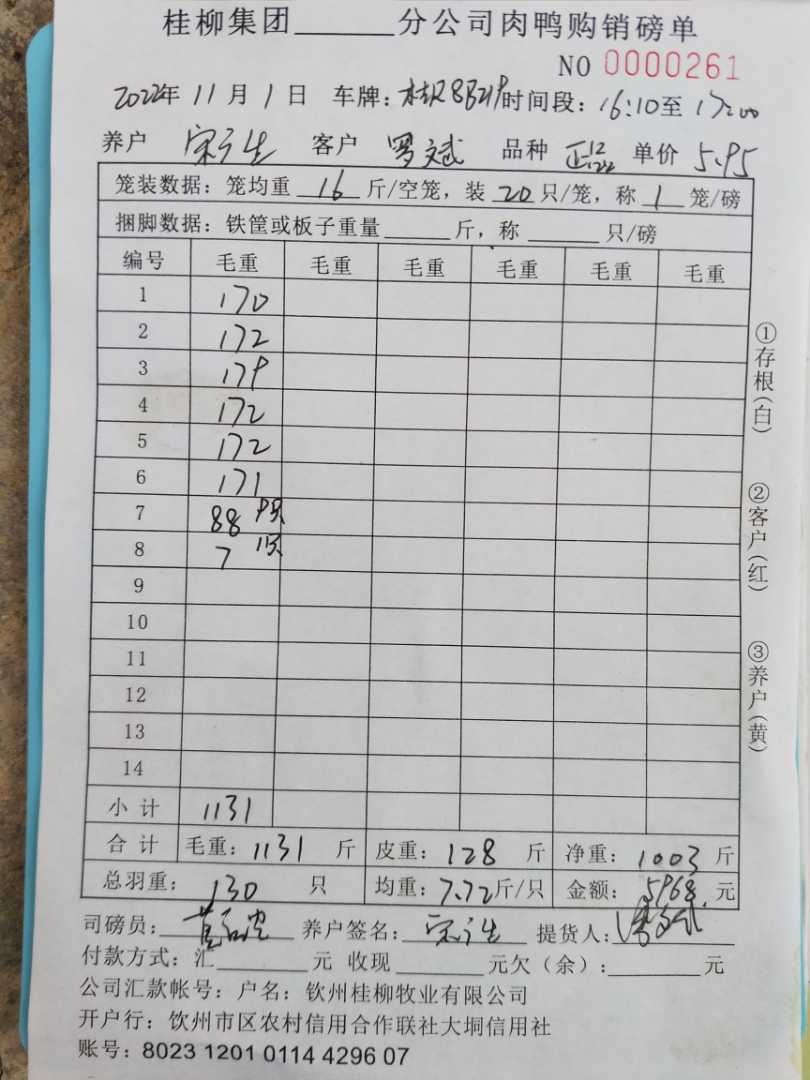 桂柳集团______分公司肉鸭购销磅单
NO 0000261
2022年 11月 1日 车牌: 时间段: 16:10至 17:00
养户 宋 生 客户 罗文斌 品种 正品 单价 5.95
笼装数据: 笼均重 16 斤/空笼, 装 20 只/笼, 称 1 笼/磅
捆脚数据: 铁筐或板子重量______斤, 称______只/磅
编号 毛重 毛重 毛重 毛重 毛重 毛重
1 170
2 172
3 179
4 172
5 172
6 171
7 88 9只
8 7 1只
9
10
11
12
13
14
小计 1131
合计 毛重: 1131 斤 皮重: 128 斤 净重: 1003 斤
总羽重: 130 只 均重: 7.72斤/只 金额: 5968 元
司磅员: 养户签名: 宋 生 提货人: 罗文斌
付款方式: 汇______元 收现______元欠(余):______元
公司汇款帐号: 户名: 钦州桂柳牧业有限公司
开户行: 钦州市区农村信用合作联社大垌信用社
账号: 8023 1201 0114 4296 07
①存根(白)
②客户(红)
③养户(黄)